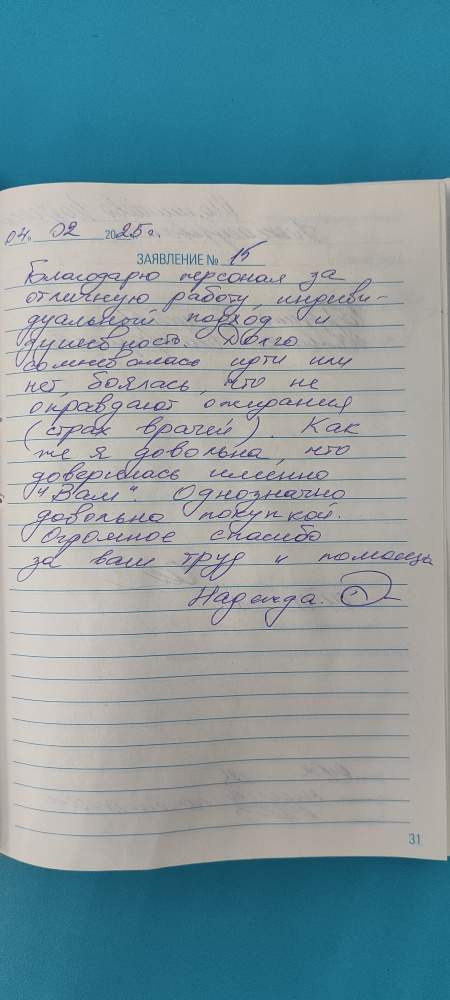 04. 02 2025 г.
ЗАЯВЛЕНИЕ № 15
Благодарю персонал за
отличную работу, индиви-
дуальный подход и
душевность. Долго
сомневалась идти или
нет, боялась, что не
оправдают ожидания
(страх врачей). Как
же я довольна, что
доверилась именно
"Вам" Однозначно
довольна покупкой.
Огромное спасибо
за ваш труд и помощь
Надежда.
31